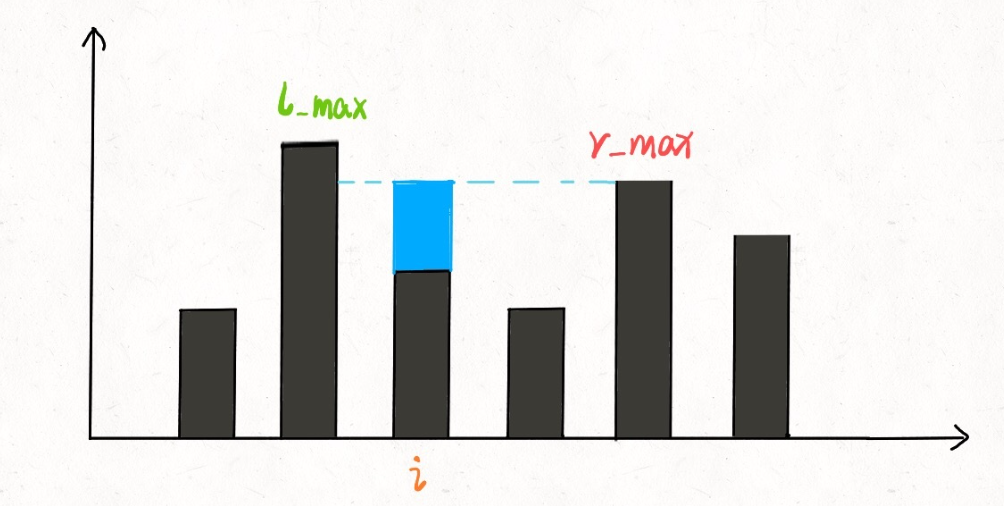 l_max
r_max
i